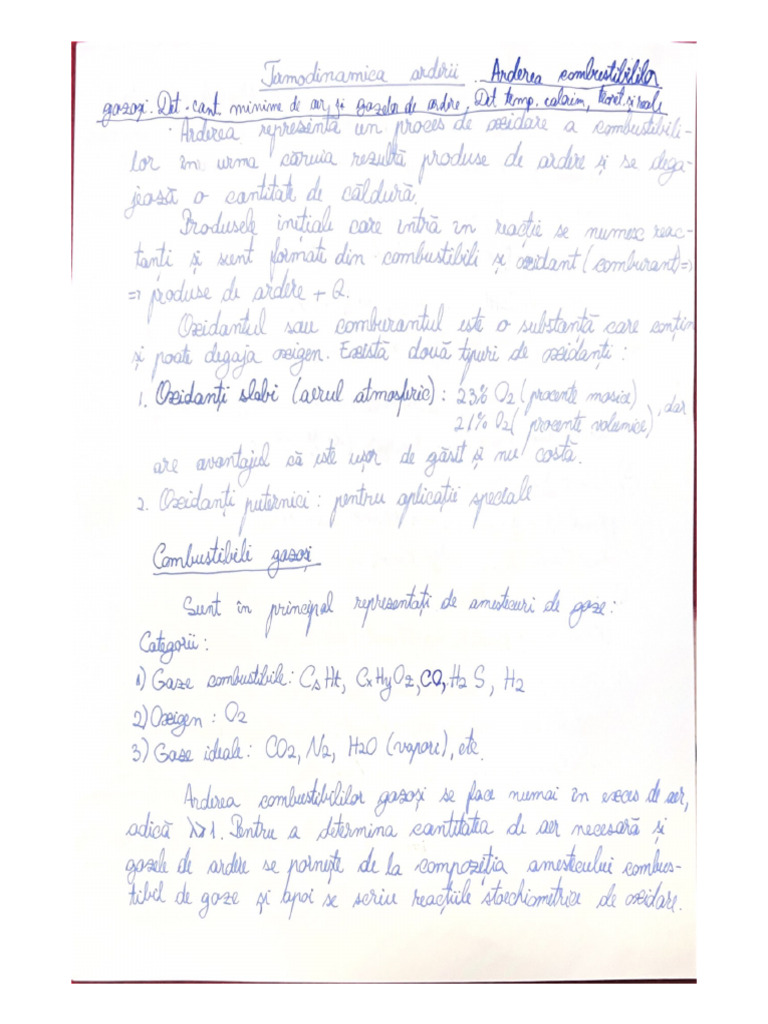 Termodinamica arderii. Arderea combustibililor
gazoși. Det. cant. minime de aer și gazelor de ardere, Det temp. calorim, teoret. și reale
Arderea reprezintă un proces de oxidare a combustibili-
lor în urma căruia rezultă produse de ardere și se dega-
jează o cantitate de căldură.
Produsele inițiale care intră în reacție se numesc reac-
tanti și sunt formate din combustibili și oxidant (comburant) =>
=> produse de ardere + Q.
Oxidantul sau comburantul este o substanță care conțin
și poate degaja oxigen. Există două tipuri de oxidanți :
1. Oxidanți slabi (aerul atmosferic) : 23% O2 (procente masice)
21% O2 ( procente volumice) , dar
are avantajul că este ușor de găsit și nu costă.
2. Oxidanți puternici : pentru aplicații speciale
Combustibili gazoși
Sunt în principal reprezentați de amestecuri de gaze :
Categorii :
1) Gaze combustibile : CsHt, CxHyOz, CO, H2S, H2
2) Oxigen : O2
3) Gaze ideale : CO2, N2, H2O (vapori), etc.
Arderea combustibililor gazoși se face numai în exces de aer,
adică λ>1. Pentru a determina cantitatea de aer necesară și
gazele de ardere se pornește de la compoziția amestecului combus-
tibil de gaze și apoi se scriu reacțiile stoechiometrice de oxidare.